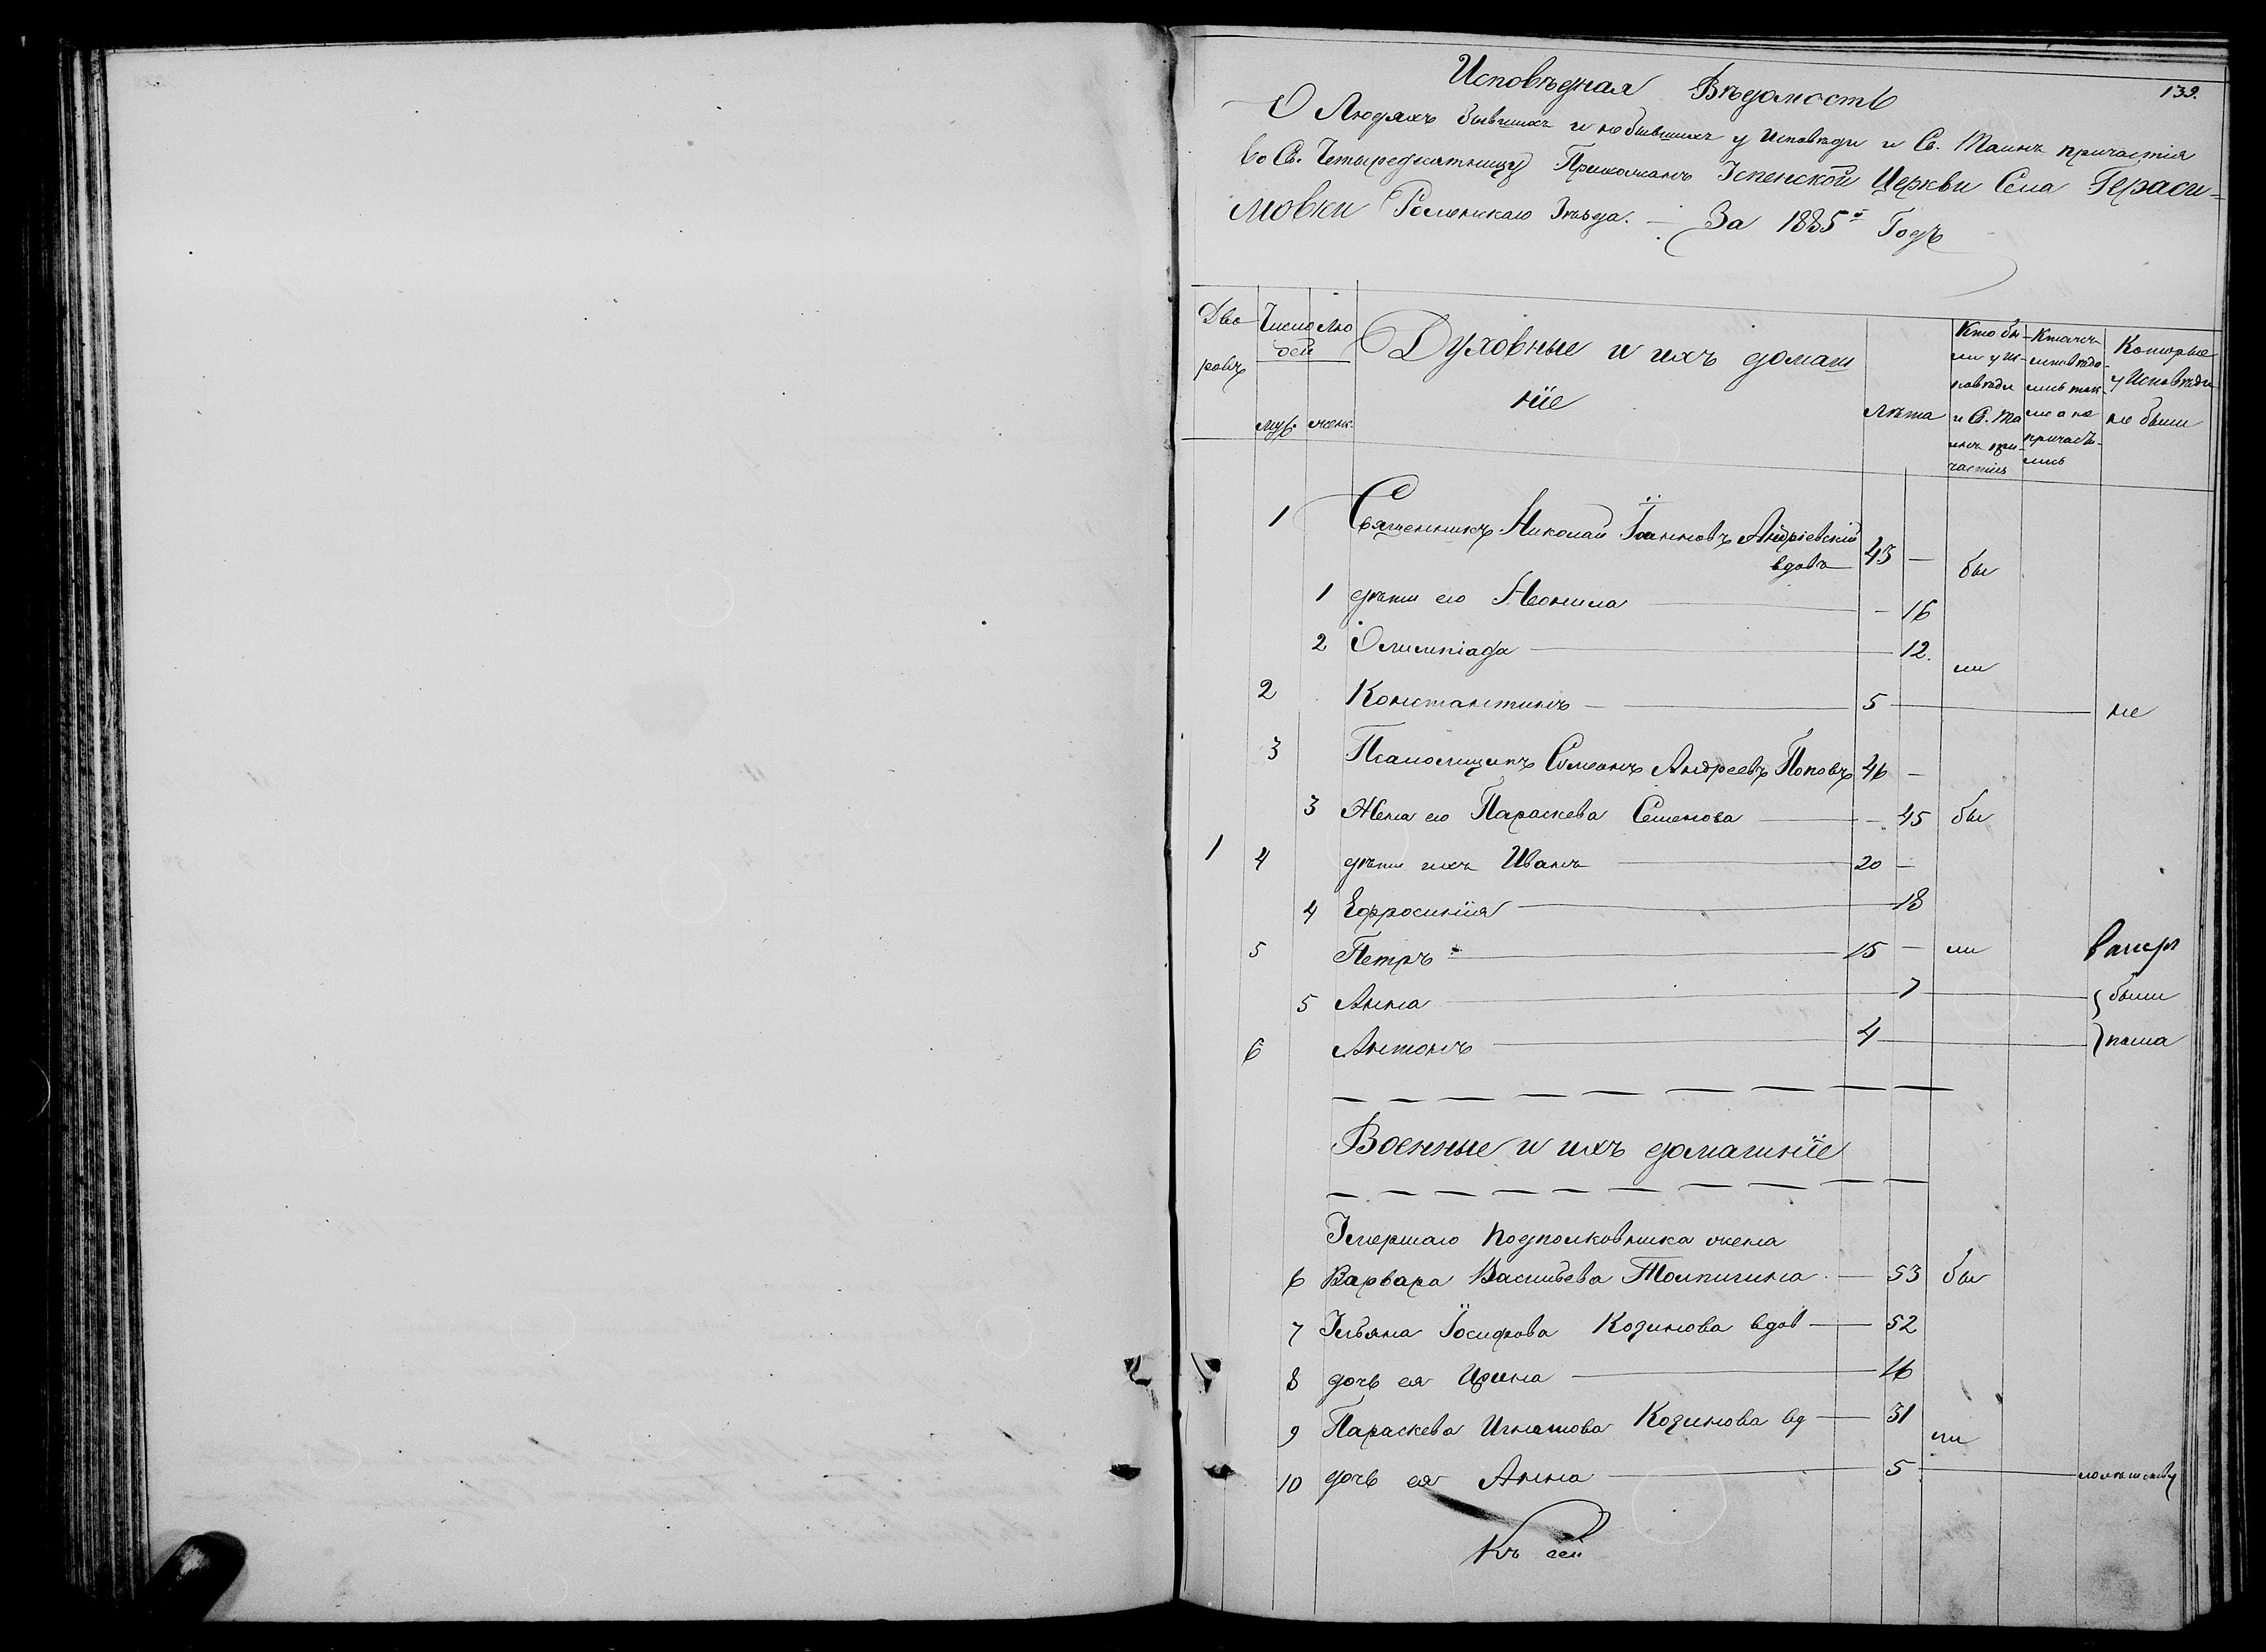 139.
Исповѣдная Вѣдомость
О Людяхъ бывшихъ и небывшихъ у Исповѣди и Св. Таинъ причастія
во Св. Четыредѣятницу Прихожанъ Успенской Церкви Села Гераси-
мовки Роменскаго Уѣзда. — За 1885й Годъ
Дво
ровъ
Число лю
дей
муж. женк.
Духовные и ихъ домаш
ніе
лѣта
Кто бы-
ли у Ис-
повѣди
и Св. Та
инъ при-
частія
Кто
исповѣда-
лись ток
мо а не
причасъ-
лись
Которые
у Исповѣди
не были
1 Священникъ Николай Іоанновъ Андріевскій
вдовъ 43 — бы
1 дѣти его Неонила — 16
2 Олимпіада 12. ли
2 Константинъ 5 не
3 Псаломщикъ Симеонъ Андреевъ Поповъ 46 —
3 Жена его Параскева Семенова — 45 бы
1 4 дѣти ихъ Иванъ 20 —
4 Ефросинія 18
5 Петръ 15 — ли
5 Анна 7 были
6 Антонъ 4
Военные и ихъ домашніе
Умершаго Подполковника жена
6 Варвара Васильева Толпигина — 53 бы
7 Ульяна Іосифова Козинова вдов — 52
8 дочь ея Ирина 16
9 Параскева Игнатова Козинова вд — 31 ли
10 дочь ея Анна 5
Къ сей